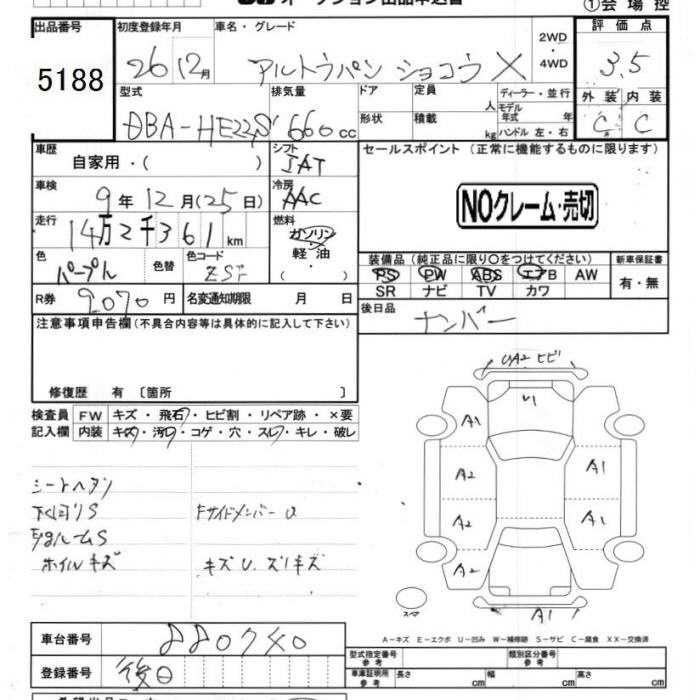 オークション出品申込書
①会場控
出品番号
5188
初度登録年月
26 12月
車名・グレード
アルトラパン ショコラ X
2WD
・
4WD
評価点
3.5
外装 内装
C C
型式
DBA-HE22S
排気量
660 cc
ドア
形状
定員
人
積載
kg
ディーラー・並行
モデル
年式 年
ハンドル 左・右
車歴
自家用・(
シフト
IAT
セールスポイント(正常に機能するものに限ります)
NOクレーム・売切
車検
9年12月(25日)
冷房
AAC
走行
14万2千361km
燃料
ガソリン
軽油
・( )
色
パープル
色替
色コード
ZSF
装備品(純正品に限り○をつけてください)
PS PW ABS エアB AW
SR ナビ TV カワ
新車保証書
有・無
R券
9070円
名変通知期限 月 日
後日品
ナンバー
注意事項申告欄(不具合内容等は具体的に記入して下さい)
修復歴 有〔箇所 〕
検査員
記入欄
FW キズ・飛石・ヒビ割・リペア跡・×要
内装 キズ・汚レ・コゲ・穴・スレ・キレ・破レ
シートヘタリ
下回りS
ホイルキズ
Fサイドメンバー U
キズU.ズリキズ
UA2 ヒビ
U1
A1
A2
A1
A2
A1
A2
A1
スペア
A−キズ E−エクボ U−凹み W−補修跡 S−サビ C−腐食 XX−交換済
車台番号
880740
登録番号
後日
型式指定番号
参考
類別区分番号
参考
車庫証明用
参考
長さ cm 幅 cm 高さ cm